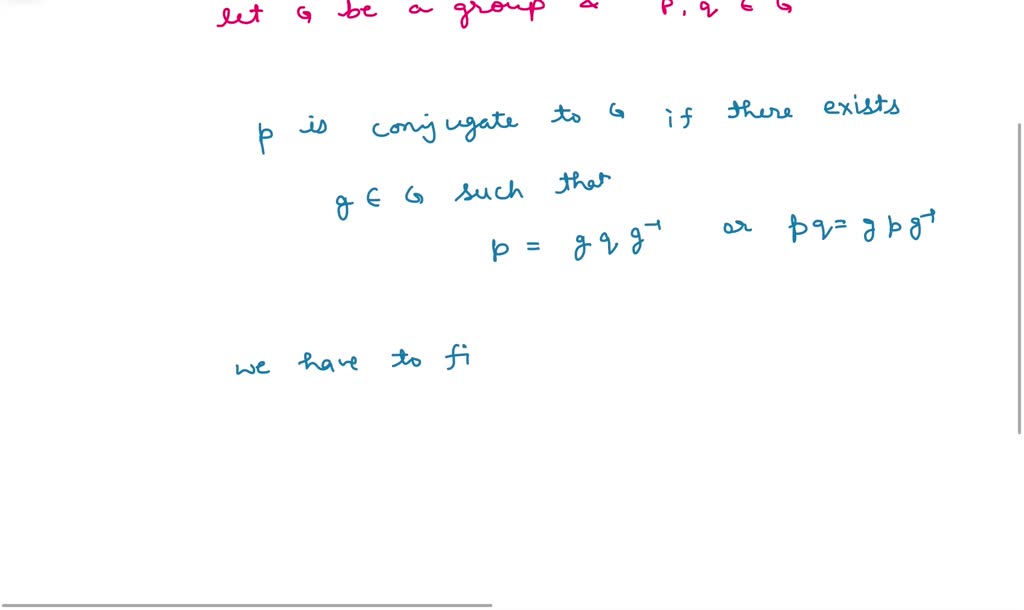 let G be a group & p, q ∈ G
p is conjugate to G if there exists
g ∈ G such that
p = g q g⁻¹ or pq = g p g⁻¹
we have to fi